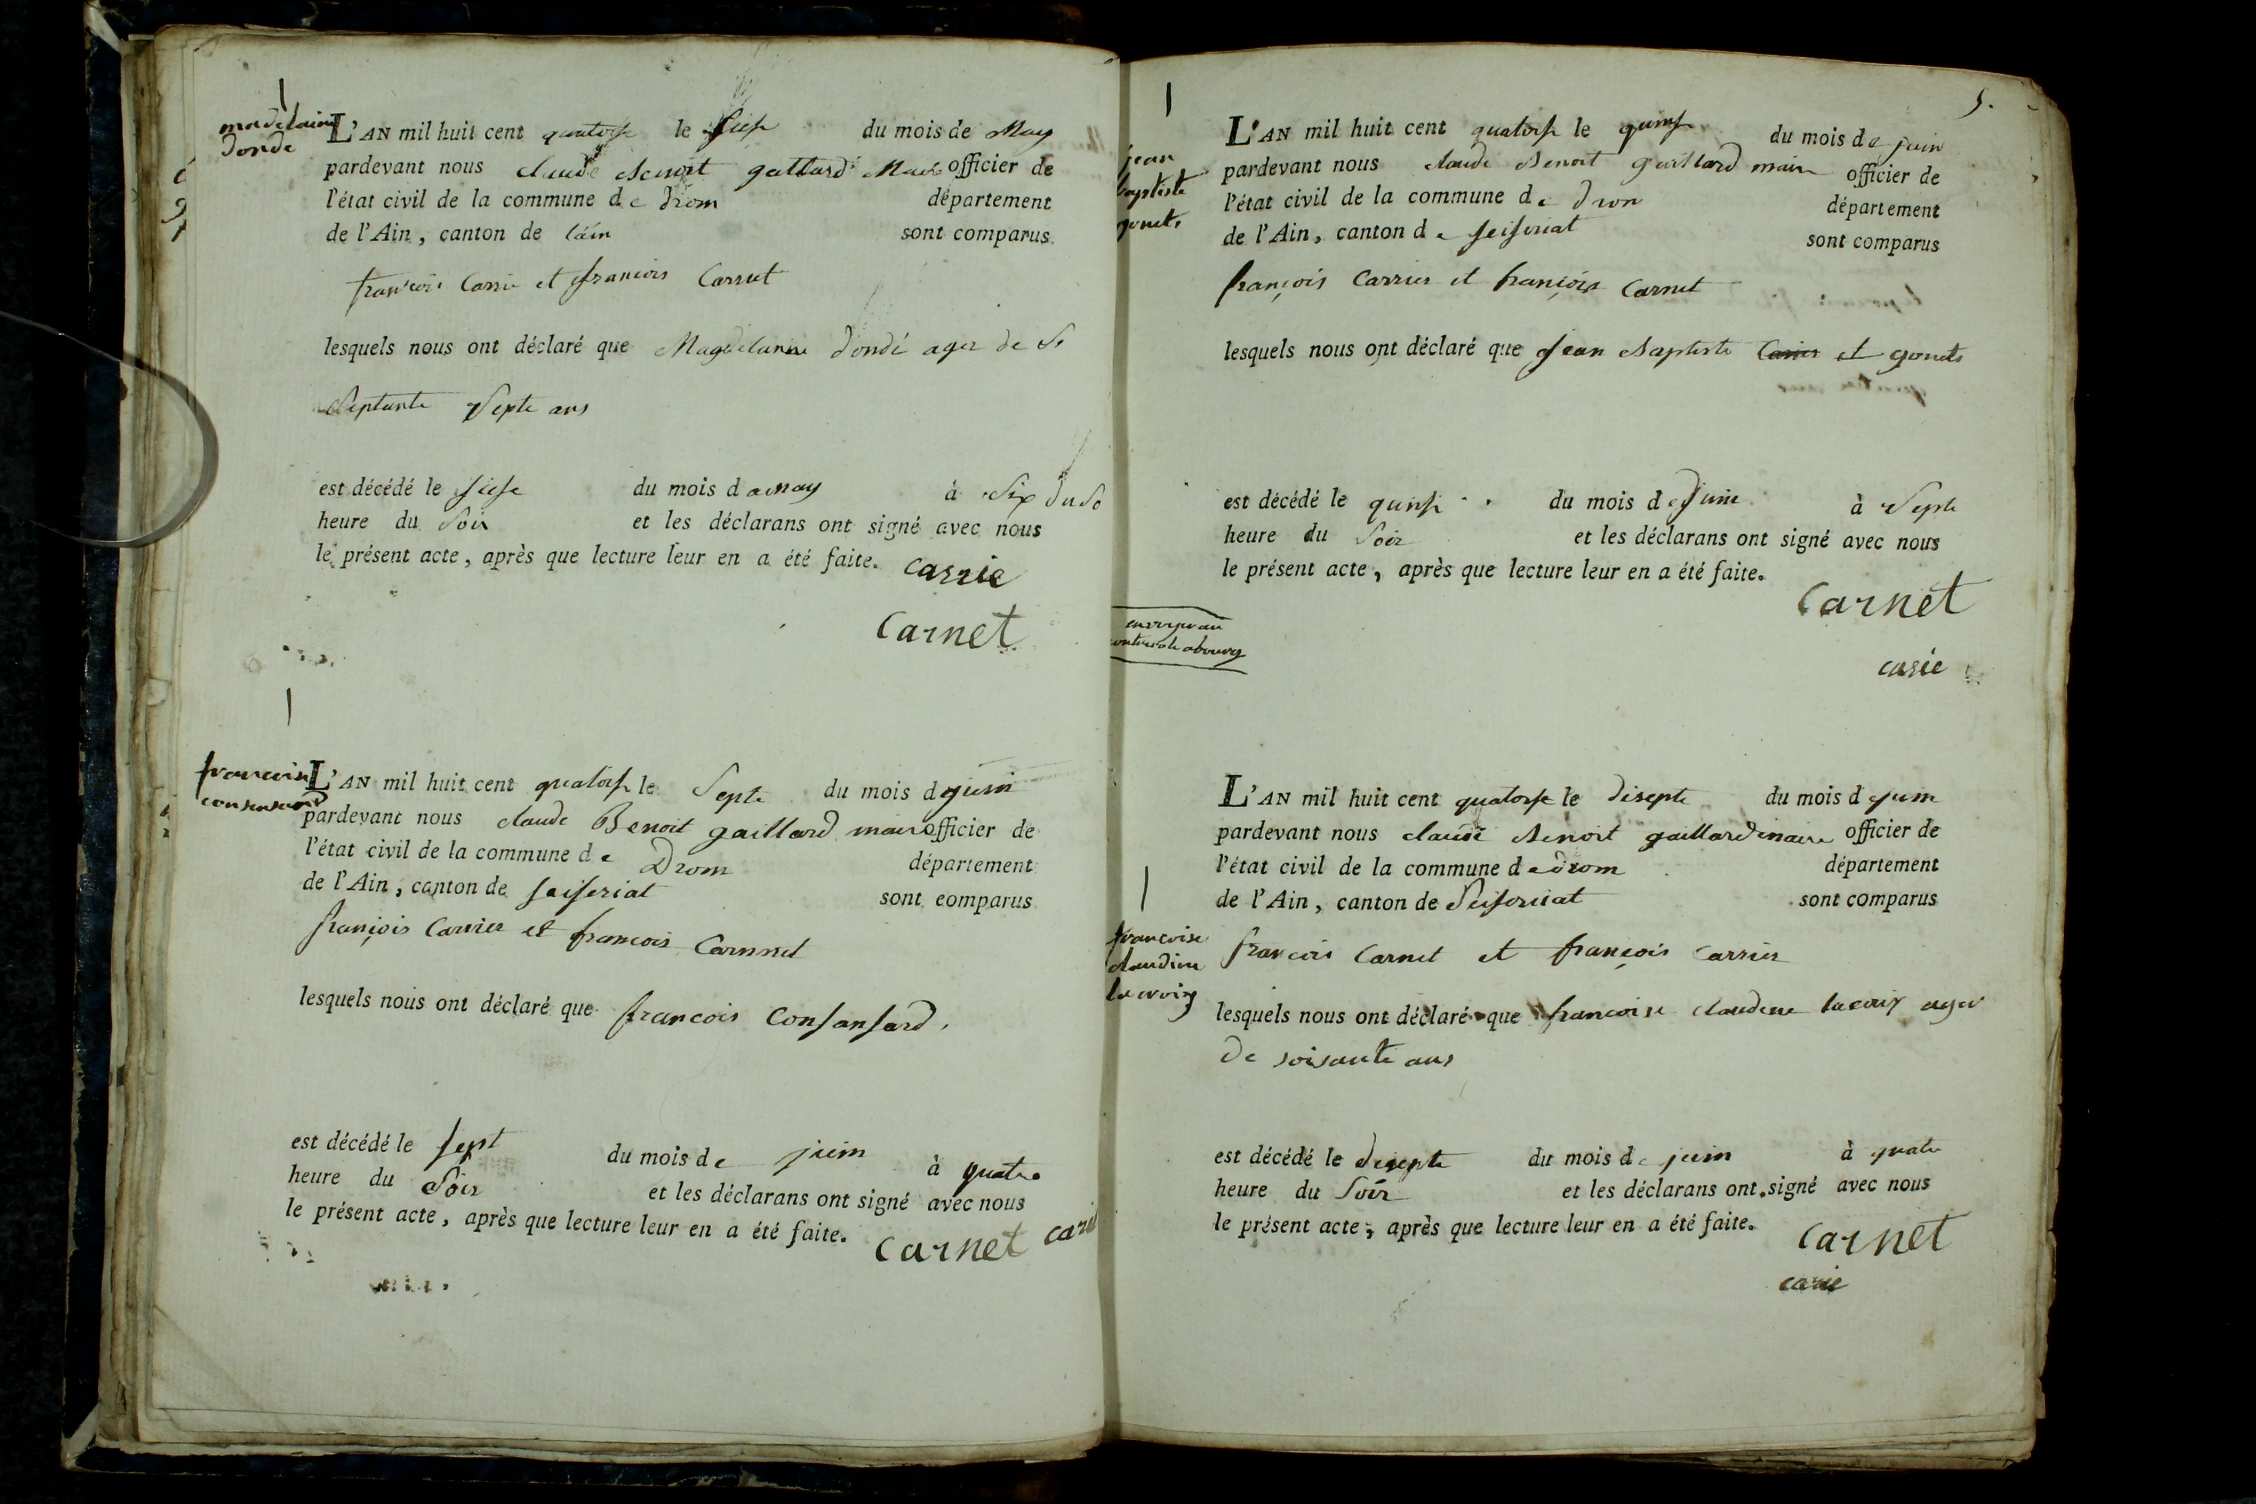 madelaine
dondé
L'AN mil huit cent quatorse le siese du mois de May
pardevant nous claude Benoit gallard Maire officier de
l'état civil de la commune de Drom département
de l'Ain, canton de láin sont comparus
francois Carrie et francois Carnet
lesquels nous ont déclaré que Magdelaine dondé ager de Se
Septante Septe ans
est décédé le siese du mois de may à Six du So
heure du Soir et les déclarans ont signé avec nous
le présent acte, après que lecture leur en a été faite.
carrie
Carnet
francois
consensard
L'AN mil huit cent quatorse le Septe du mois de juin
pardevant nous claude Benoit gaillard maire officier de
l'état civil de la commune de Drom département
de l'Ain, canton de seiseriat sont comparus
françois Carrier et francois Carnnet
lesquels nous ont déclaré que francois Consansard,
est décédé le sept du mois de juim à quatre
heure du Soir et les déclarans ont signé avec nous
le présent acte, après que lecture leur en a été faite.
Carnet carie
5.
jean
baptiste
gonet
L'AN mil huit cent quatorse le quinse du mois de juin
pardevant nous claude Benoit gaillard maire officier de
l'état civil de la commune de dron département
de l'Ain, canton de seiseriat sont comparus
françois Carrier et françois Carnet
lesquels nous ont déclaré que Jean Baptiste Carier et gonet
est décédé le quinse du mois de Juin à Septe
heure du Soir et les déclarans ont signé avec nous
le présent acte, après que lecture leur en a été faite.
Carnet
carie
L'AN mil huit cent quatorse le disepte du mois de juin
pardevant nous claude Benoit gaillard maire officier de
l'état civil de la commune de drom département
de l'Ain, canton de Seiseriat sont comparus
francoise
claudine
lacroix
francois Carnet et françois Carrier
lesquels nous ont déclaré que francoise claudine lacroix ager
de soisante ans
est décédé le disepte du mois de juin à quatre
heure du Soir et les déclarans ont signé avec nous
le présent acte, après que lecture leur en a été faite.
Carnet
carie